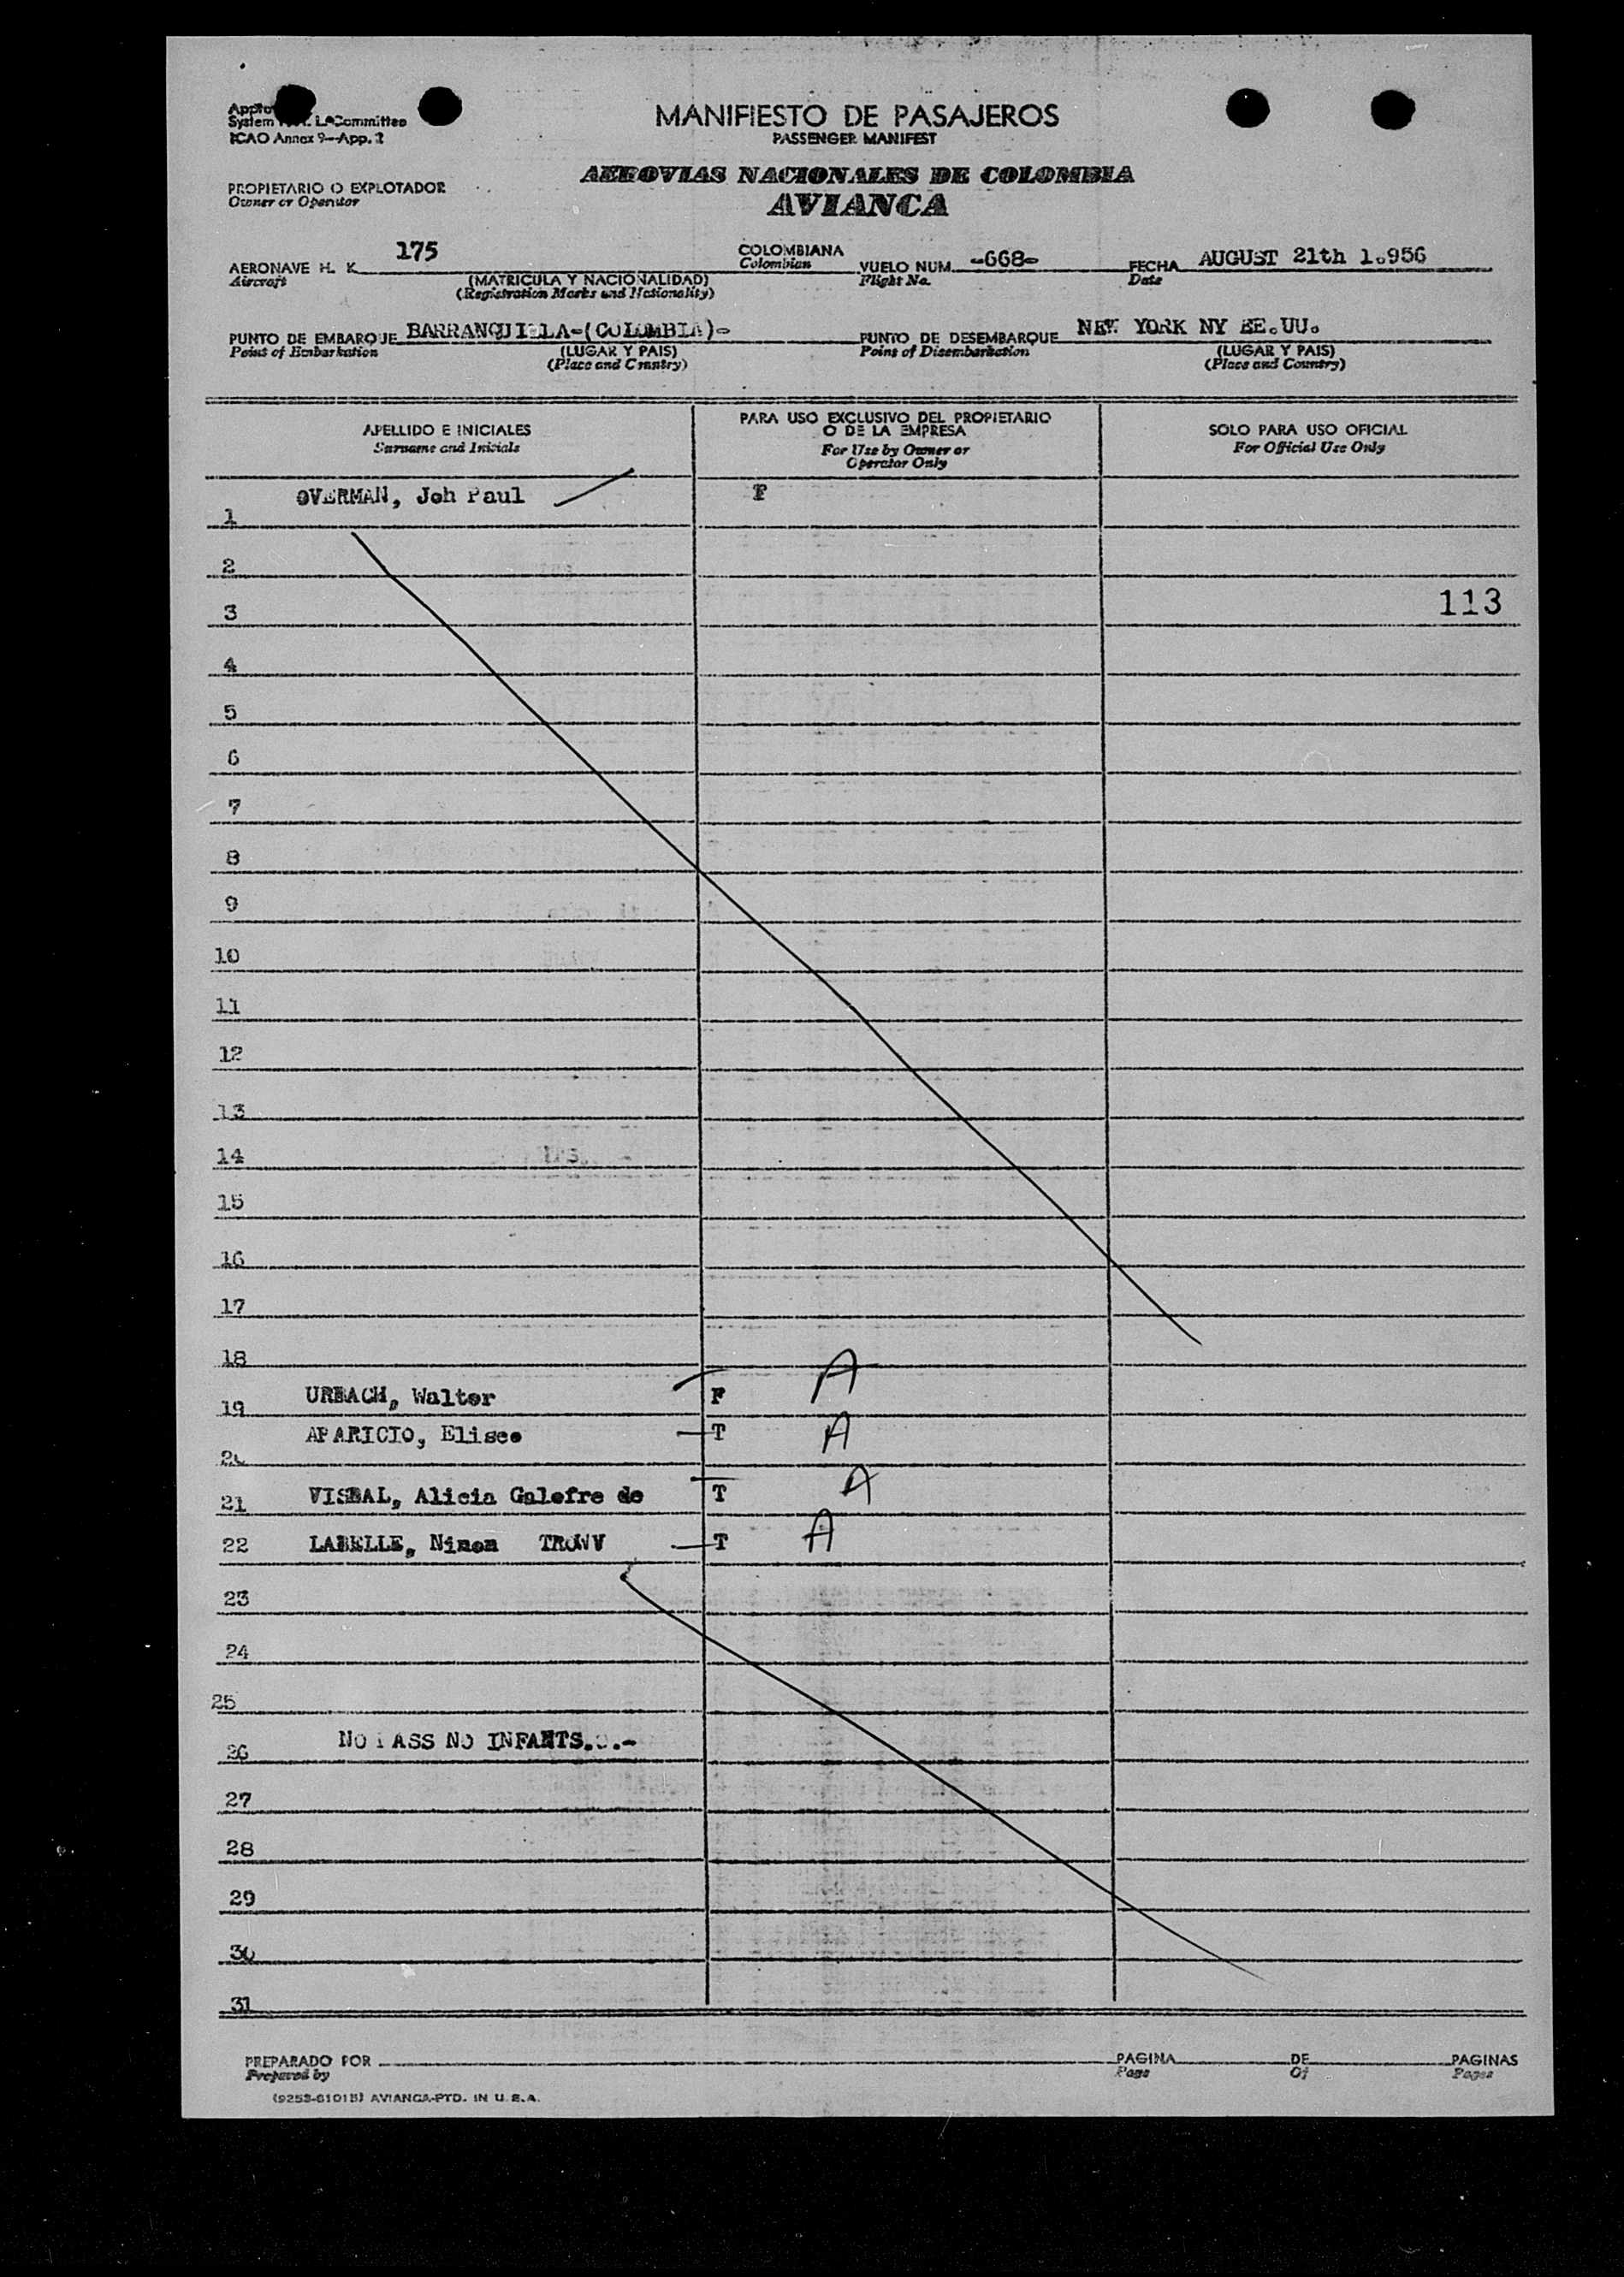 System L. Committee
ICAO Annex 9—App. 2
MANIFIESTO DE PASAJEROS
PASSENGER MANIFEST
PROPIETARIO O EXPLOTADOR
Owner or Operator
AEROVIAS NACIONALES DE COLOMBIA
AVIANCA
AERONAVE H. K. 175 COLOMBIANA VUELO NUM. -668- FECHA AUGUST 21th 1.956
Aircraft (MATRICULA Y NACIONALIDAD) Colombian Flight No. Date
(Registration Marks and Nationality)
PUNTO DE EMBARQUE BARRANQUILLA-(COLOMBIA)- PUNTO DE DESEMBARQUE NEW YORK NY EE.UU.
Point of Embarkation (LUGAR Y PAIS) Point of Disembarkation (LUGAR Y PAIS)
(Place and Country) (Place and Country)
APELLIDO E INICIALES
Surname and Initials
PARA USO EXCLUSIVO DEL PROPIETARIO
O DE LA EMPRESA
For Use by Owner or
Operator Only
SOLO PARA USO OFICIAL
For Official Use Only
1 OVERMAN, Joh Paul F
2
3 113
4
5
6
7
8
9
10
11
12
13
14
15
16
17
18
19 URBACH, Walter F A
20 APARICIO, Eliseo T A
21 VISBAL, Alicia Galofre de T A
22 LABELLE, Ninon T A
23
24
25
26 NO PASS NO INFANTS.
27
28
29
30
31
PREPARADO POR PAGINA DE PAGINAS
Prepared by Page Of Pages
(9253-6101B) AVIANCA-PTD. IN U. S. A.